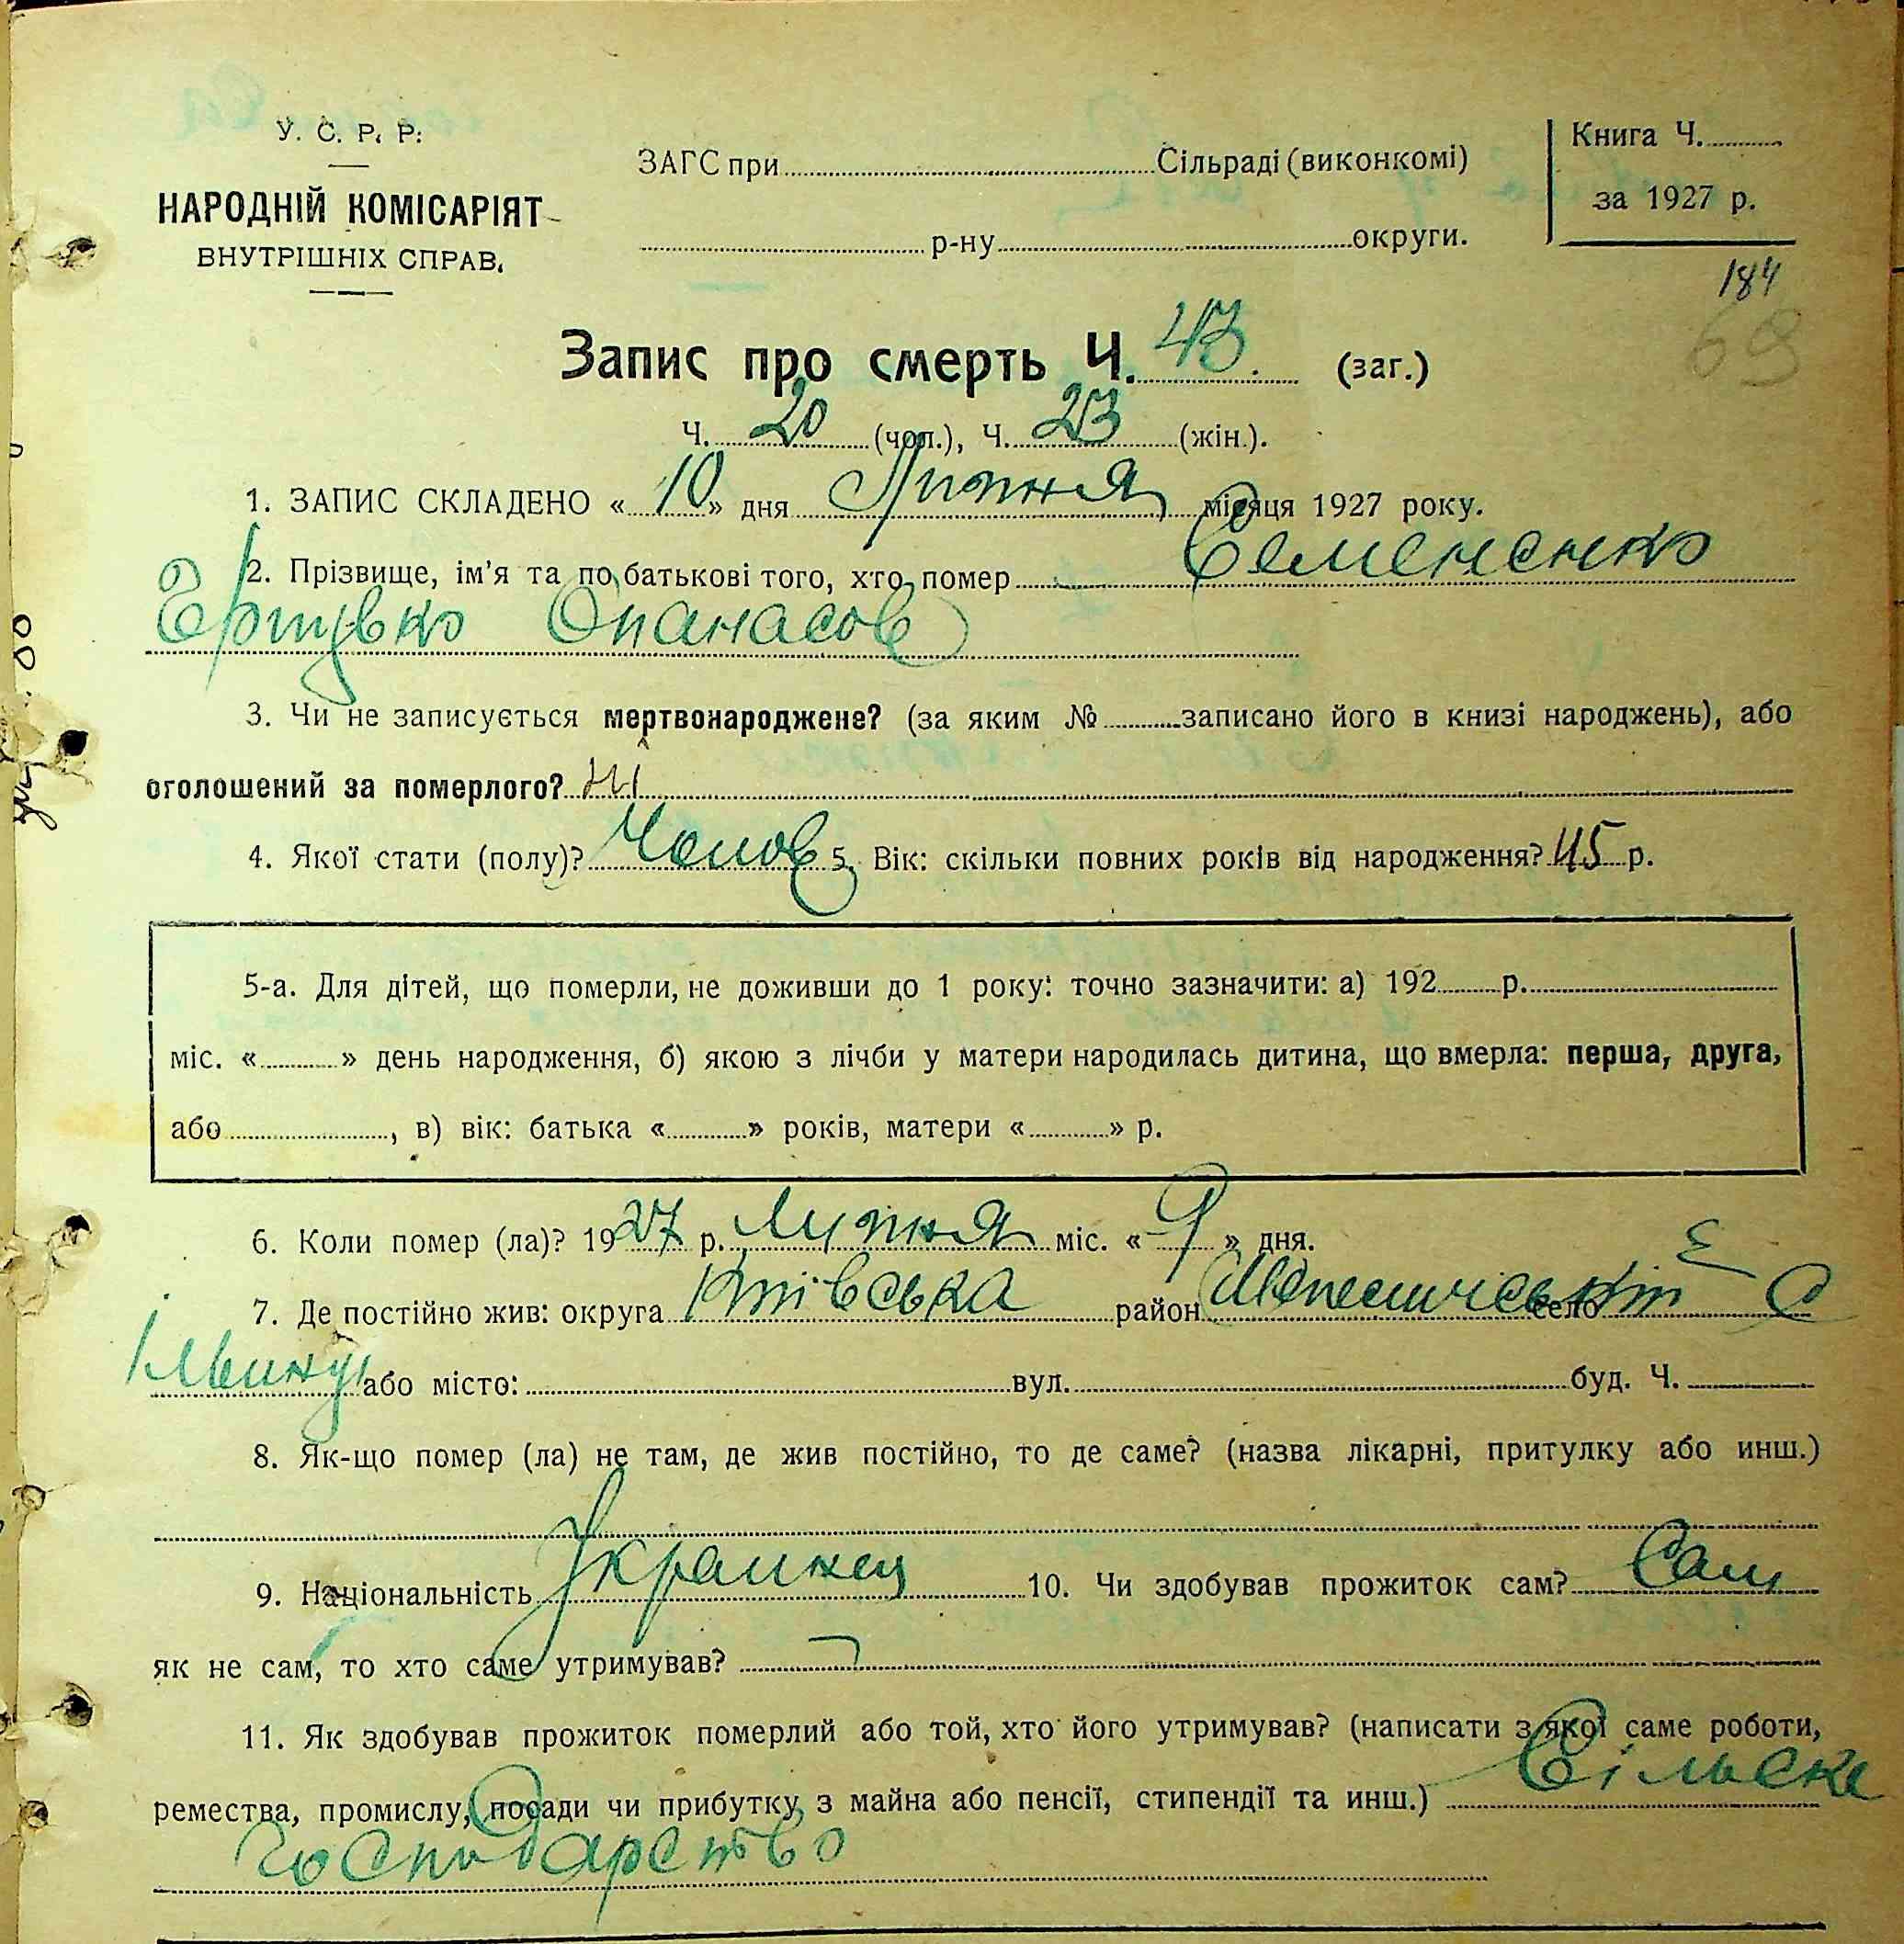 У. С. Р. Р.
НАРОДНІЙ КОМІСАРІЯТ
ВНУТРІШНІХ СПРАВ.
ЗАГС при Сільраді (виконкомі)
р-ну округи.
Книга Ч.
за 1927 р.
184
69
Запис про смерть Ч. 43 (заг.)
Ч. 20 (чол.), Ч. 23 (жін.).
1. ЗАПИС СКЛАДЕНО « 10 » дня Липня місяця 1927 року.
2. Прізвище, ім'я та по батькові того, хто помер Семененко
Опанасов
3. Чи не записується мертвонароджене? (за яким № записано його в книзі народжень), або
оголошений за померлого? ні
4. Якої стати (полу)? Чолов 5. Вік: скільки повних років від народження? 45 р.
5-а. Для дітей, що померли, не доживши до 1 року: точно зазначити: а) 192 р.
міс. « » день народження, б) якою з лічби у матери народилась дитина, що вмерла: перша, друга,
або , в) вік: батька « » років, матери « » р.
6. Коли помер (ла)? 1927 р. Липня міс. « 9 » дня.
7. Де постійно жив: округа Київська район село С
або місто: вул. буд. Ч.
8. Як-що помер (ла) не там, де жив постійно, то де саме? (назва лікарні, притулку або инш.)
9. Національність Украинец 10. Чи здобував прожиток сам? Сам
як не сам, то хто саме утримував?
11. Як здобував прожиток померлий або той, хто його утримував? (написати з якої саме роботи,
ремества, промислу, посади чи прибутку з майна або пенсії, стипендії та инш.) Сільске
Господарство